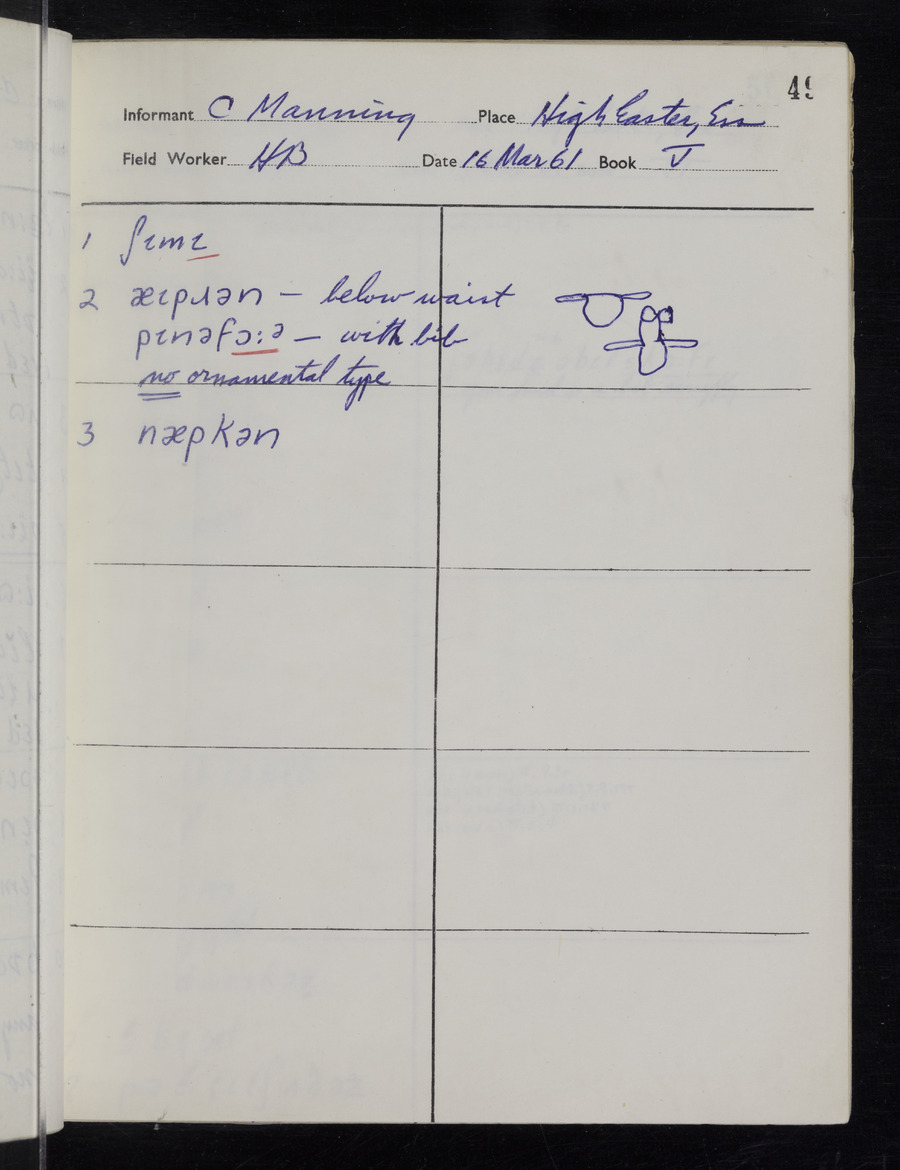 49
Informant C Manning Place High Easter, Ess
Field Worker HB Date 16 Mar 61 Book V
1 ʃɪmɪ
2 æɪpɹən – below waist
pɪnəfɔ:ə – with bib
no ornamental type
3 næpkən